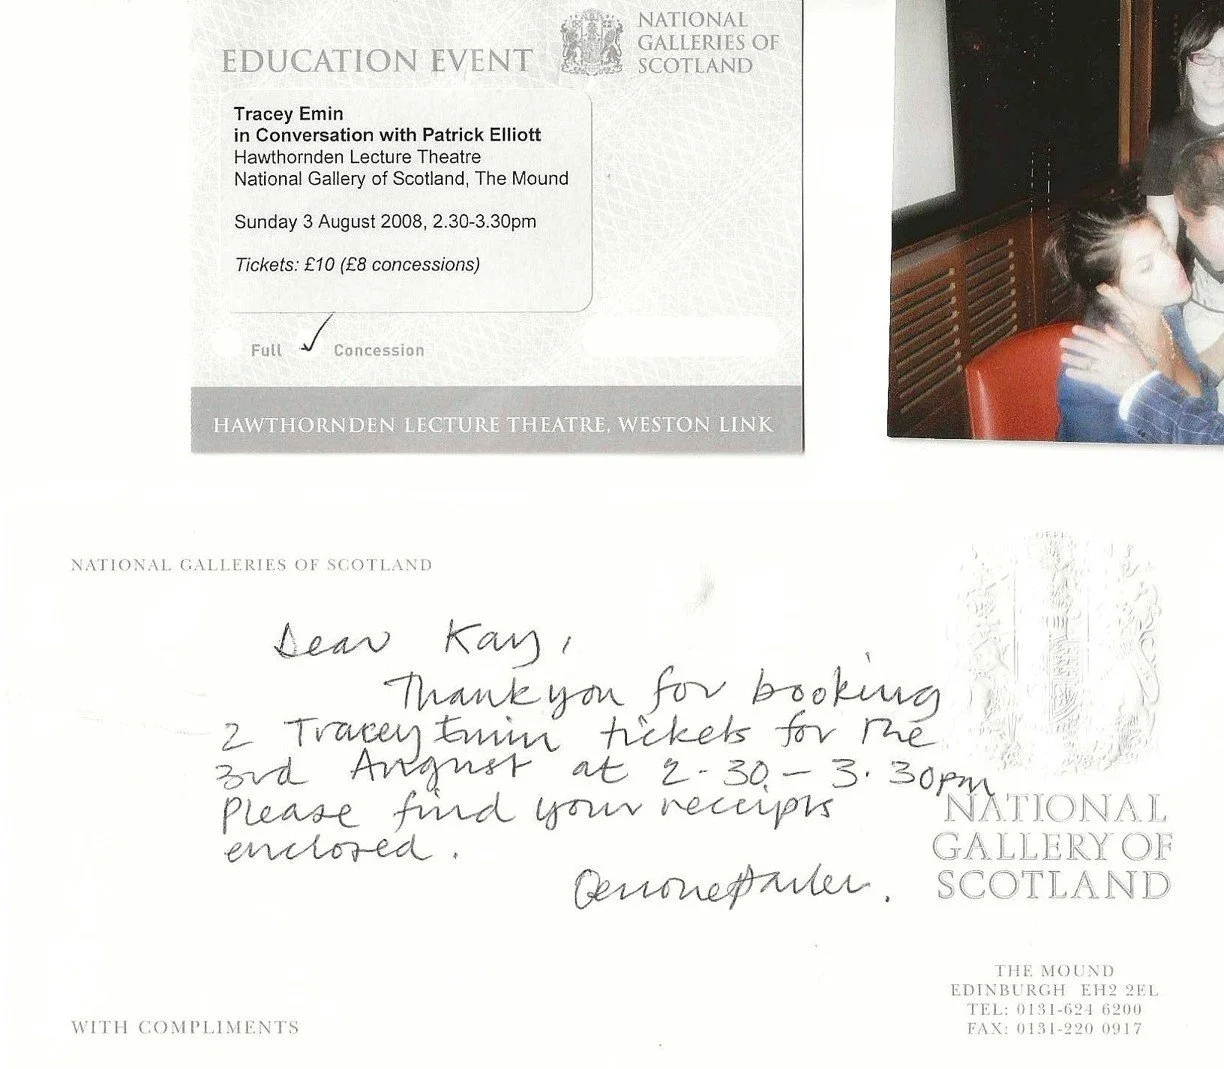 EDUCATION EVENT
NATIONAL
GALLERIES OF
SCOTLAND
Tracey Emin
in Conversation with Patrick Elliott
Hawthornden Lecture Theatre
National Gallery of Scotland, The Mound
Sunday 3 August 2008, 2.30-3.30pm
Tickets: £10 (£8 concessions)
Full ✓ Concession
HAWTHORNDEN LECTURE THEATRE, WESTON LINK
NATIONAL GALLERIES OF SCOTLAND
Dear Kay,
Thankyou for booking
2 Tracey Emin tickets for the
3rd August at 2.30 - 3.30pm
Please find your receipts
enclosed.
NATIONAL
GALLERY OF
SCOTLAND
THE MOUND
EDINBURGH EH2 2EL
TEL: 0131-624 6200
FAX: 0131-220 0917
WITH COMPLIMENTS